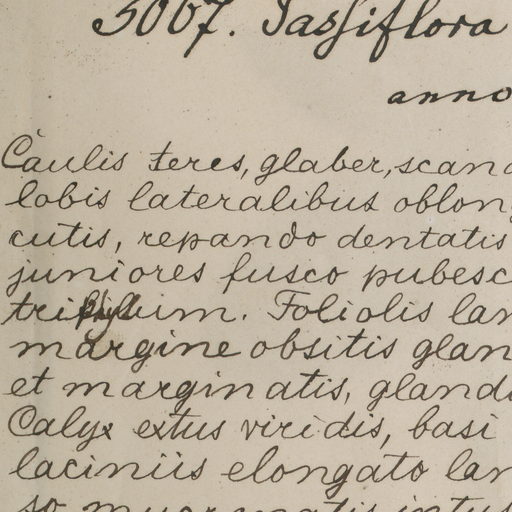 5067. Passiflora
anno
Caulis teres, glaber, scand
lobis lateralibus oblong
cutis, repando dentatis
juniores fusco pubesc
triphyllum. Foliolis lan
margine obsitis glan
et marginatis, glando
Calyx extus viridis, basi
laciniis elongato lan
so mucronatis intus